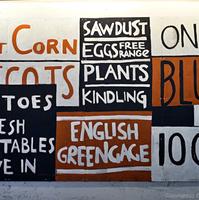 T CORN
COTS
TOES
ESH
TABLES
VE IN
SAWDUST
EGGS FREE RANGE
PLANTS
KINDLING
ENGLISH
GREENGAGE
ON
BLU
100